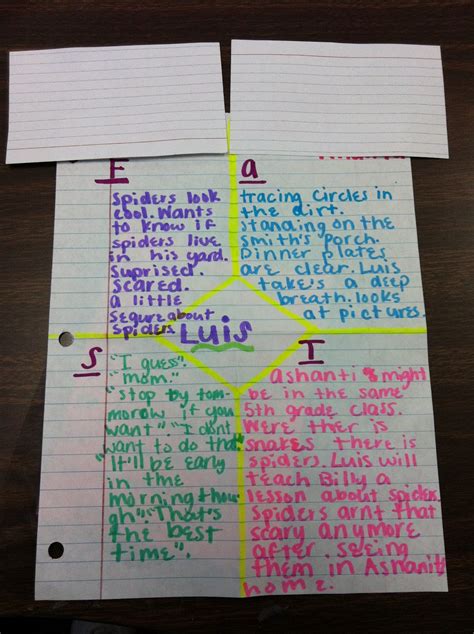 F
Spiders look
cool. Wants
to know if
spiders live
in his yard.
Suprised.
scared.
a little
segure about
spiders
a
tracing circles in
the dirt.
standing on the
smith's porch.
Dinner plates
are clear. Luis
takes a deep
breath. looks
at pictures.
Luis
S
"I guess".
"mom."
"stop by tom-
morow if you
want". "I dont
want to do that
It'll be early
in the
morning thou
gh". "That's
the best
time".
I
Ashanti & might
be in the same
5th grade class.
Were ther is
snakes there is
spiders. Luis will
teach Billy a
lesson about spider.
Spiders arnt that
scary anymore
after seeing
them in Ashanit
home.